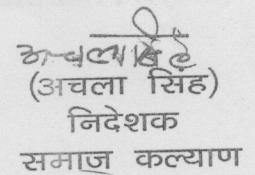 अचला सिंह
(अचला सिंह)
निदेशक
समाज कल्याण